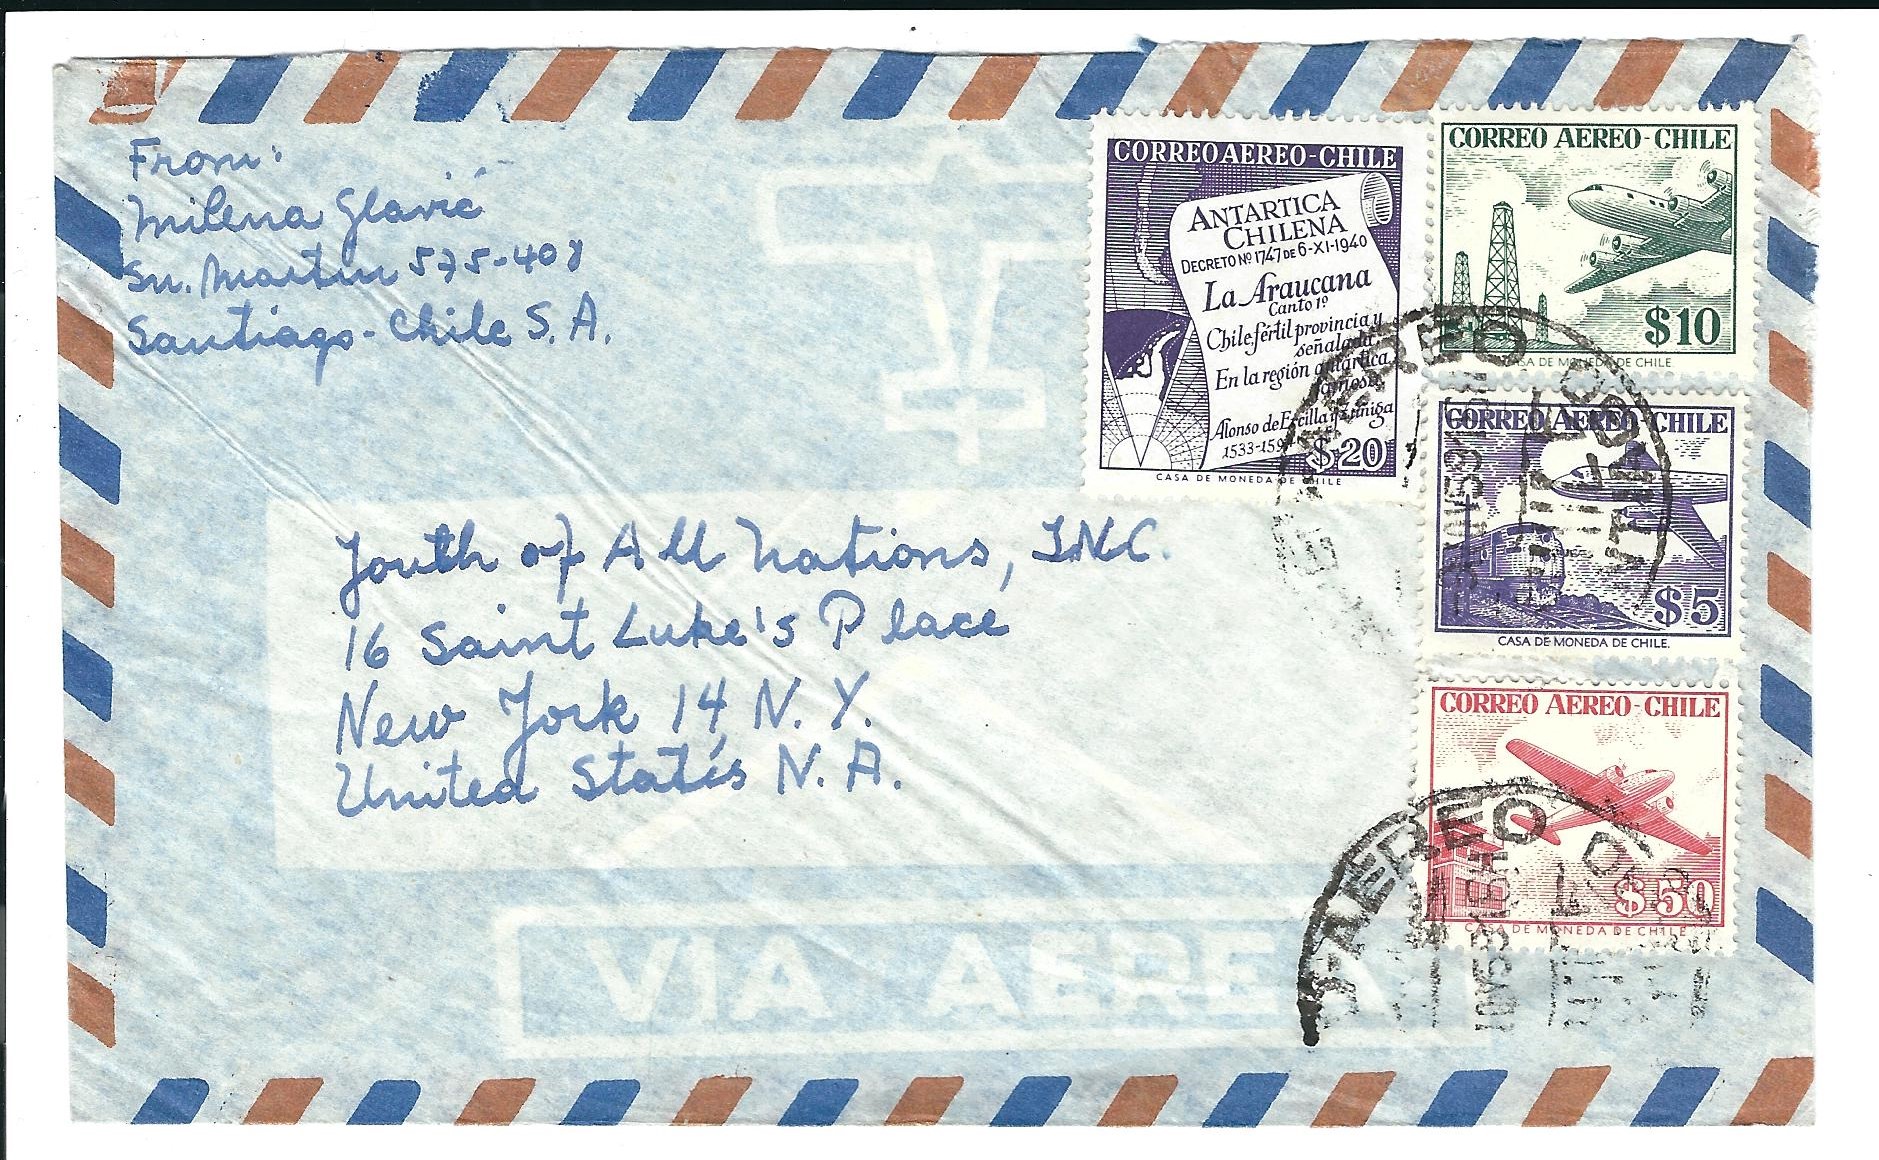 From:
Milena Glavić
Sn. Martin 575-408
Santiago-Chile S.A.
Youth of All Nations, INC.
16 Saint Luke's Place
New York 14 N.Y.
United States N.A.
CORREO AEREO-CHILE
ANTARTICA
CHILENA
DECRETO Nº 1747 DE 6-XI-1940
La Araucana
Canto 1º
Chile fértil provincia y
señalada
En la región antártica
famosa
Alonso de Ercilla y Zúñiga
1533-1594
$ 20
CASA DE MONEDA DE CHILE
CORREO AEREO-CHILE
$10
CASA DE MONEDA DE CHILE
CORREO AEREO-CHILE
$5
CASA DE MONEDA DE CHILE.
CORREO AEREO-CHILE
$50
CASA DE MONEDA DE CHILE
AEREO
AEREO
VIA AEREA